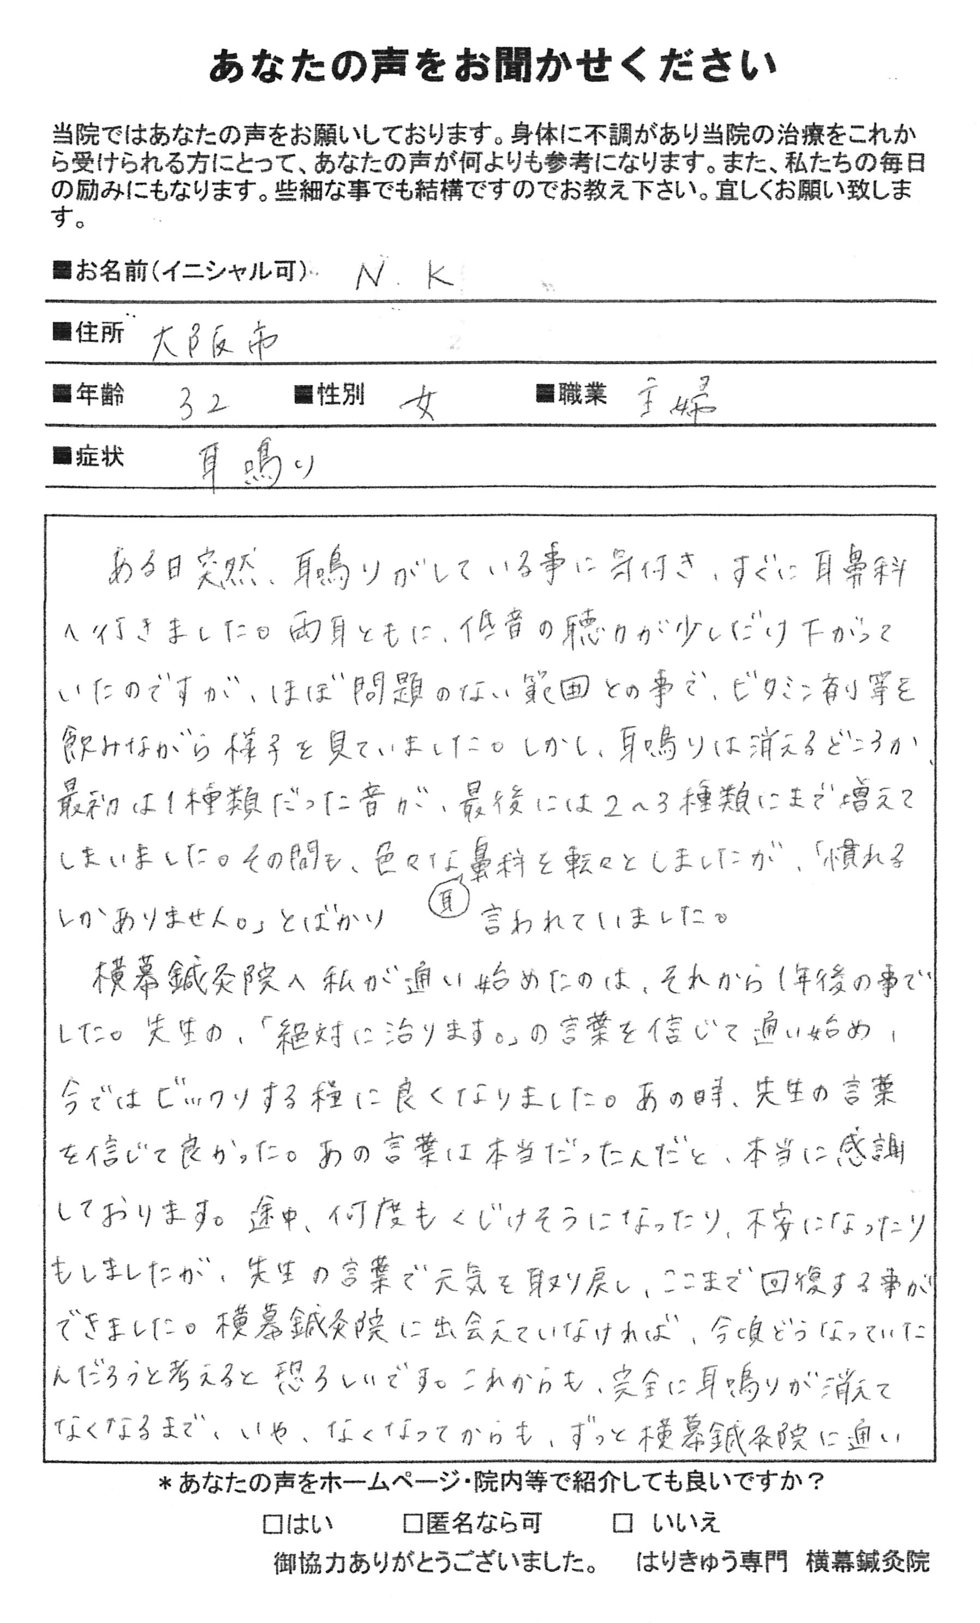 あなたの声をお聞かせください
当院ではあなたの声をお願いしております。身体に不調があり当院の治療をこれか
ら受けられる方にとって、あなたの声が何よりも参考になります。また、私たちの毎日
の励みにもなります。些細な事でも結構ですのでお教え下さい。宜しくお願い致しま
す。
■お名前(イニシャル可) N.K
■住所 大阪市
■年齢 32 ■性別 女 ■職業 主婦
■症状 耳鳴り
ある日突然、耳鳴りがしている事に気付き、すぐに耳鼻科
へ行きました。両耳ともに、低音の聴力が少しだけ下がって
いたのですが、ほぼ問題のない範囲との事で、ビタミン剤等を
飲みながら様子を見ていました。しかし、耳鳴りは消えるどころか、
最初は1種類だった音が、最後には2~3種類にまで増えて
しまいました。その間も、色々な耳鼻科を転々としましたが、「慣れる
しかありません。」とばかり言われていました。
横幕鍼灸院へ私が通い始めたのは、それから1年後の事で
した。先生の、「絶対に治ります。」の言葉を信じて通い始め、
今ではビックリする程に良くなりました。あの時、先生の言葉
を信じて良かった。あの言葉は本当だったんだと、本当に感謝
しております。途中、何度もくじけそうになったり、不安になったり
もしましたが、先生の言葉で元気を取り戻し、ここまで回復する事が
できました。横幕鍼灸院に出会えていなければ、今頃どうなっていた
んだろうと考えると恐ろしいです。これからも、完全に耳鳴りが消えて
なくなるまで、いや、なくなってからも、ずっと横幕鍼灸院に通い
*あなたの声をホームページ・院内等で紹介しても良いですか?
□はい □匿名なら可 □ いいえ
御協力ありがとうございました。 はりきゅう専門 横幕鍼灸院